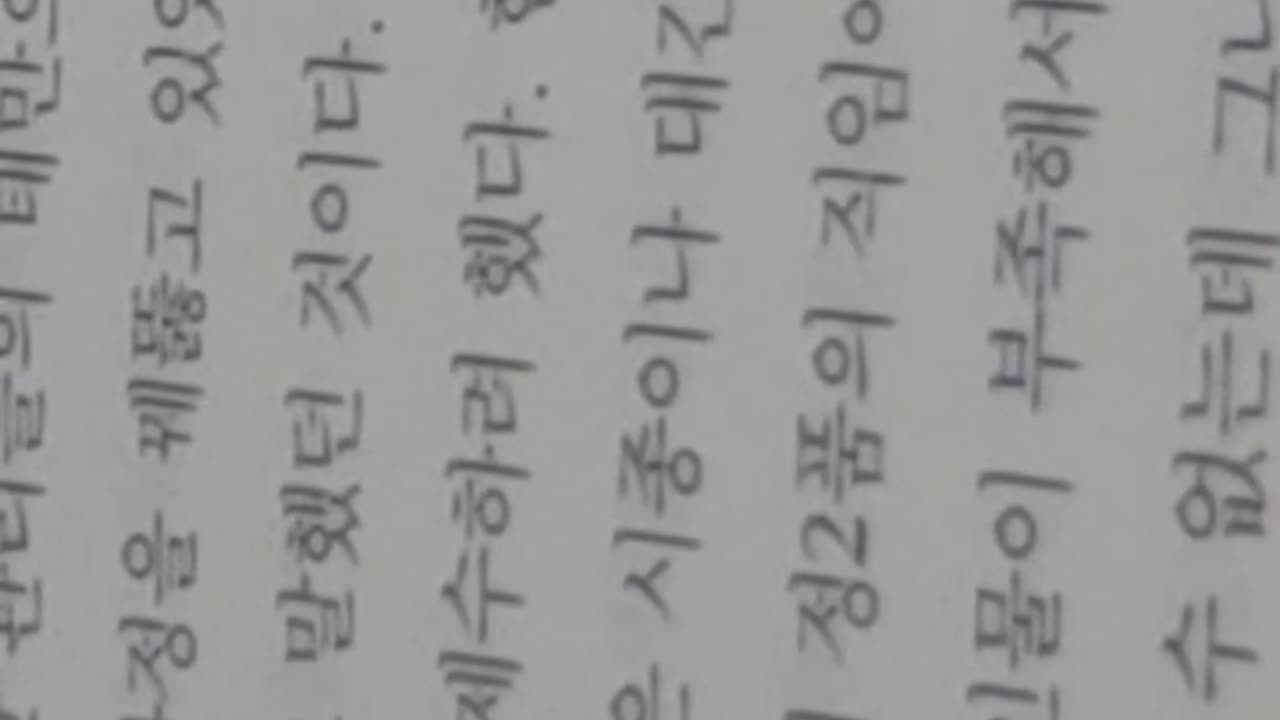 관리들의
정을 꿰뚫고 있
말했던 것이다.
제수하려 했다.
은 시종이나 대간
정2품의 직임이
인물이 부족해서
수 없는데 그